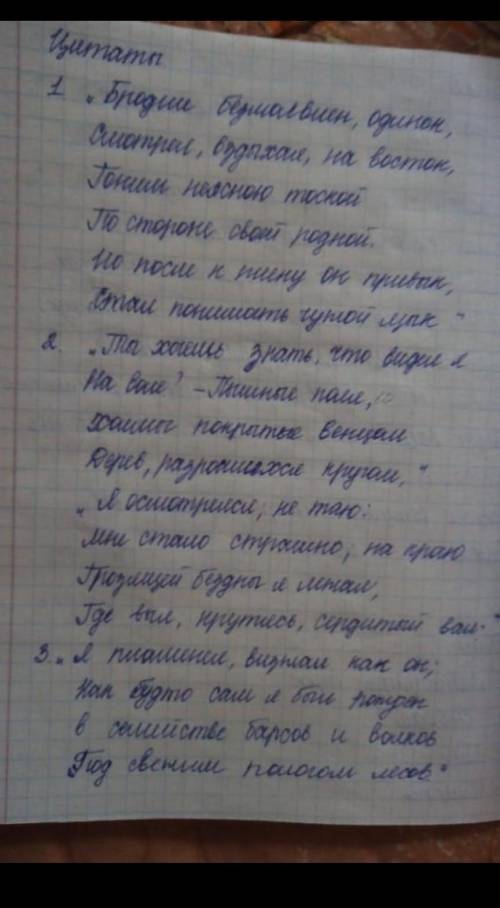 Цитаты
1. „Бродил безмолвен, одинок,
Смотрел, вздыхая, на восток,
Гоним неясною тоской
По стороне своей родной.
Но после к плену он привык,
Стал понимать чужой язык"
2. „Ты хочешь знать, что видел я
На воле? - Пышные поля,
Холмы покрытые венцом
Дерев, разросшихся кругом,"
„Я осмотрелся; не таю:
Мне стало страшно; на краю
Грозящей бездны я лежал,
Где выл, крутясь, сердитый вал;"
3. „Я пламенел, визжал как он;
Как будто сам я был рожден
в семействе барсов и волков
Под свежим пологом лесов"